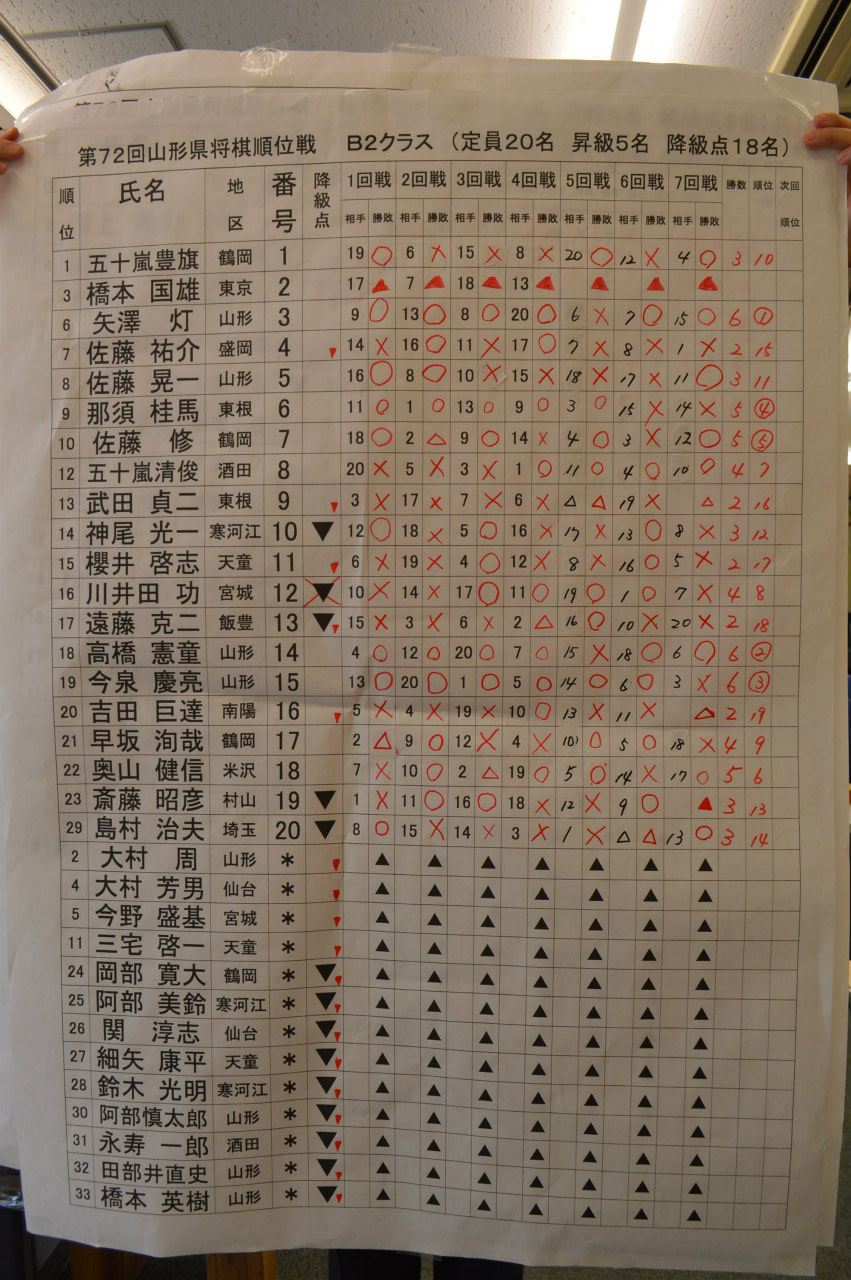 第72回山形県将棋順位戦 B2クラス （定員20名 昇級5名 降級点18名）
順位 氏名 地区 番号 降級点 1回戦 2回戦 3回戦 4回戦 5回戦 6回戦 7回戦 勝数 順位 次回順位
相手 勝敗 相手 勝敗 相手 勝敗 相手 勝敗 相手 勝敗 相手 勝敗 相手 勝敗
1 五十嵐豊旗 鶴岡 1 19 ○ 6 × 15 × 8 × 20 ○ 12 × 4 ○ 3 10
3 橋本 国雄 東京 2 17 ▲ 7 ▲ 18 ▲ 13 ▲ ▲ ▲ ▲
6 矢澤 灯 山形 3 9 ○ 13 ○ 8 ○ 20 ○ 6 × 7 ○ 15 ○ 6 ①
7 佐藤 祐介 盛岡 4 ▼ 14 × 16 ○ 11 × 17 ○ 7 × 8 × 1 × 2 15
8 佐藤 晃一 山形 5 16 ○ 8 ○ 10 × 15 × 18 × 17 × 11 ○ 3 11
9 那須 桂馬 東根 6 11 ○ 1 ○ 13 ○ 9 ○ 3 ○ 15 × 14 × 5 ④
10 佐藤 修 鶴岡 7 18 ○ 2 △ 9 ○ 14 × 4 ○ 3 × 12 ○ 5 ⑤
12 五十嵐清俊 酒田 8 20 × 5 × 3 × 1 ○ 11 ○ 4 ○ 10 ○ 4 7
13 武田 貞二 東根 9 ▼ 3 × 17 × 7 × 6 × △ △ 19 × △ 2 16
14 神尾 光一 寒河江 10 ▼ 12 ○ 18 × 5 ○ 16 × 17 × 13 ○ 8 × 3 12
15 櫻井 啓志 天童 11 ▼ 6 × 19 × 4 ○ 12 × 8 × 16 ○ 5 × 2 17
16 川井田 功 宮城 12 ▼ 10 × 14 × 17 ○ 11 ○ 19 ○ 1 ○ 7 × 4 8
17 遠藤 克二 飯豊 13 ▼▼ 15 × 3 × 6 × 2 △ 16 ○ 10 × 20 × 2 18
18 高橋 憲童 山形 14 4 ○ 12 ○ 20 ○ 7 ○ 15 × 18 ○ 6 ○ 6 ②
19 今泉 慶亮 山形 15 13 ○ 20 ○ 1 ○ 5 ○ 14 ○ 6 ○ 3 × 6 ③
20 吉田 巨達 南陽 16 ▼ 5 × 4 × 19 × 10 ○ 13 × 11 × △ 2 19
21 早坂 洵哉 鶴岡 17 2 △ 9 ○ 12 × 4 × 10 ○ 5 ○ 18 × 4 9
22 奥山 健信 米沢 18 7 × 10 ○ 2 △ 19 ○ 5 ○ 14 × 17 ○ 5 6
23 斎藤 昭彦 村山 19 ▼ 1 × 11 ○ 16 ○ 18 × 12 × 9 ○ ▲ 3 13
29 島村 治夫 埼玉 20 ▼ 8 ○ 15 × 14 × 3 × 1 × △ △ 13 ○ 3 14
2 大村 周 山形 * ▼ ▲ ▲ ▲ ▲ ▲ ▲ ▲
4 大村 芳男 仙台 * ▼ ▲ ▲ ▲ ▲ ▲ ▲ ▲
5 今野 盛基 宮城 * ▼ ▲ ▲ ▲ ▲ ▲ ▲ ▲
11 三宅 啓一 天童 * ▼ ▲ ▲ ▲ ▲ ▲ ▲ ▲
24 岡部 寛大 鶴岡 * ▼▼ ▲ ▲ ▲ ▲ ▲ ▲ ▲
25 阿部 美鈴 寒河江 * ▼▼ ▲ ▲ ▲ ▲ ▲ ▲ ▲
26 関 淳志 仙台 * ▼▼ ▲ ▲ ▲ ▲ ▲ ▲ ▲
27 細矢 康平 天童 * ▼▼ ▲ ▲ ▲ ▲ ▲ ▲ ▲
28 鈴木 光明 寒河江 * ▼▼ ▲ ▲ ▲ ▲ ▲ ▲ ▲
30 阿部慎太郎 山形 * ▼▼ ▲ ▲ ▲ ▲ ▲ ▲ ▲
31 永寿 一郎 酒田 * ▼▼ ▲ ▲ ▲ ▲ ▲ ▲ ▲
32 田部井直史 山形 * ▼▼ ▲ ▲ ▲ ▲ ▲ ▲ ▲
33 橋本 英樹 山形 * ▼▼ ▲ ▲ ▲ ▲ ▲ ▲ ▲